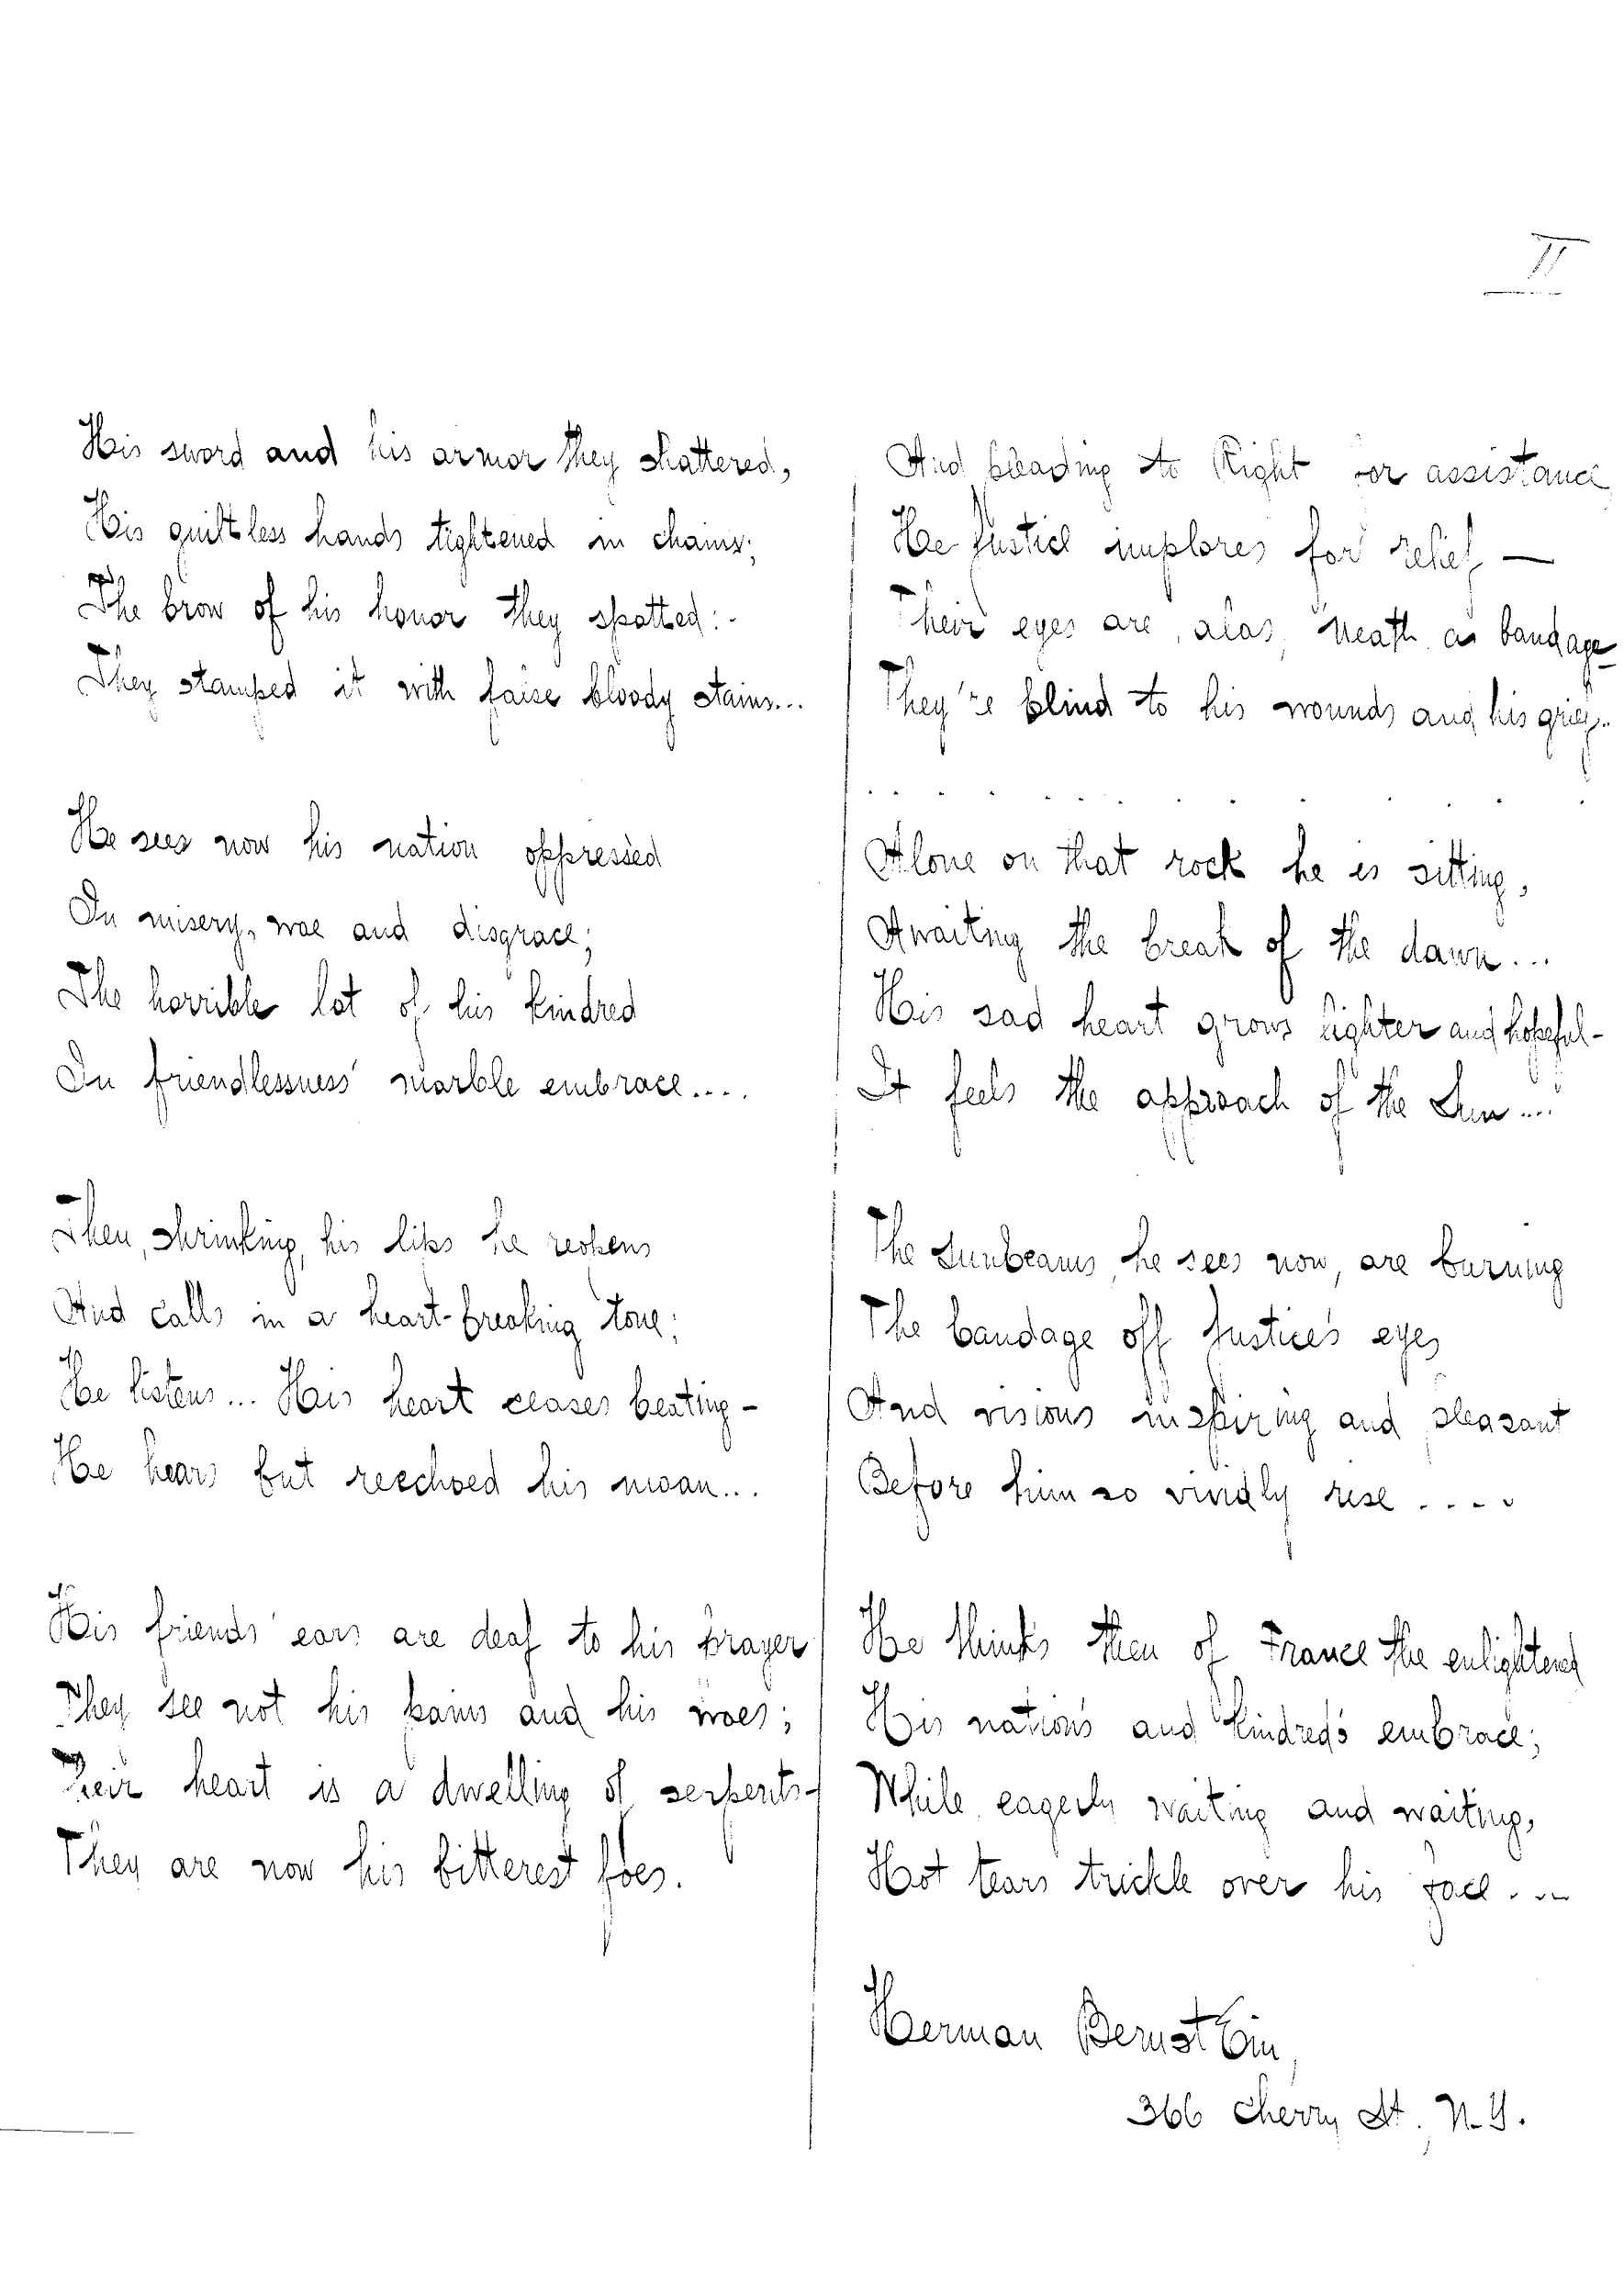 II
His sword and his armor they shattered,
His guiltless hands tightened in chains;
The brow of his honor they spotted:-
They stamped it with false bloody stains...
He sees now his nation oppressed
In misery, woe and disgrace;
The horrible lot of his kindred
In friendlessness' marble embrace....
Then, shrinking, his lips he reopens
And calls in a heart-breaking tone;
He listens... His heart ceases beating-
He hears but reechoed his moan...
His friends' ears are deaf to his prayer
They see not his pains and his woes;
Their heart is a dwelling of serpents-
They are now his bitterest foes.
And pleading to Right for assistance
He Justice implores for relief —
Their eyes are, alas, 'neath a bandage-
They're blind to his wounds and his grief..
. . . . . . . . . . . . . .
Alone on that rock he is sitting,
Awaiting the break of the dawn...
His sad heart grows lighter and hopeful-
It feels the approach of the Sun....
The Sunbeams, he sees now, are burning
The bandage off Justice's eyes
And visions inspiring and pleasant
Before him so vividly rise ....
He thinks then of France the enlightened
His nation's and kindred's embrace;
While eagerly waiting and waiting,
Hot tears trickle over his face....
Herman Bernstein,
366 Cherry St., N.Y.